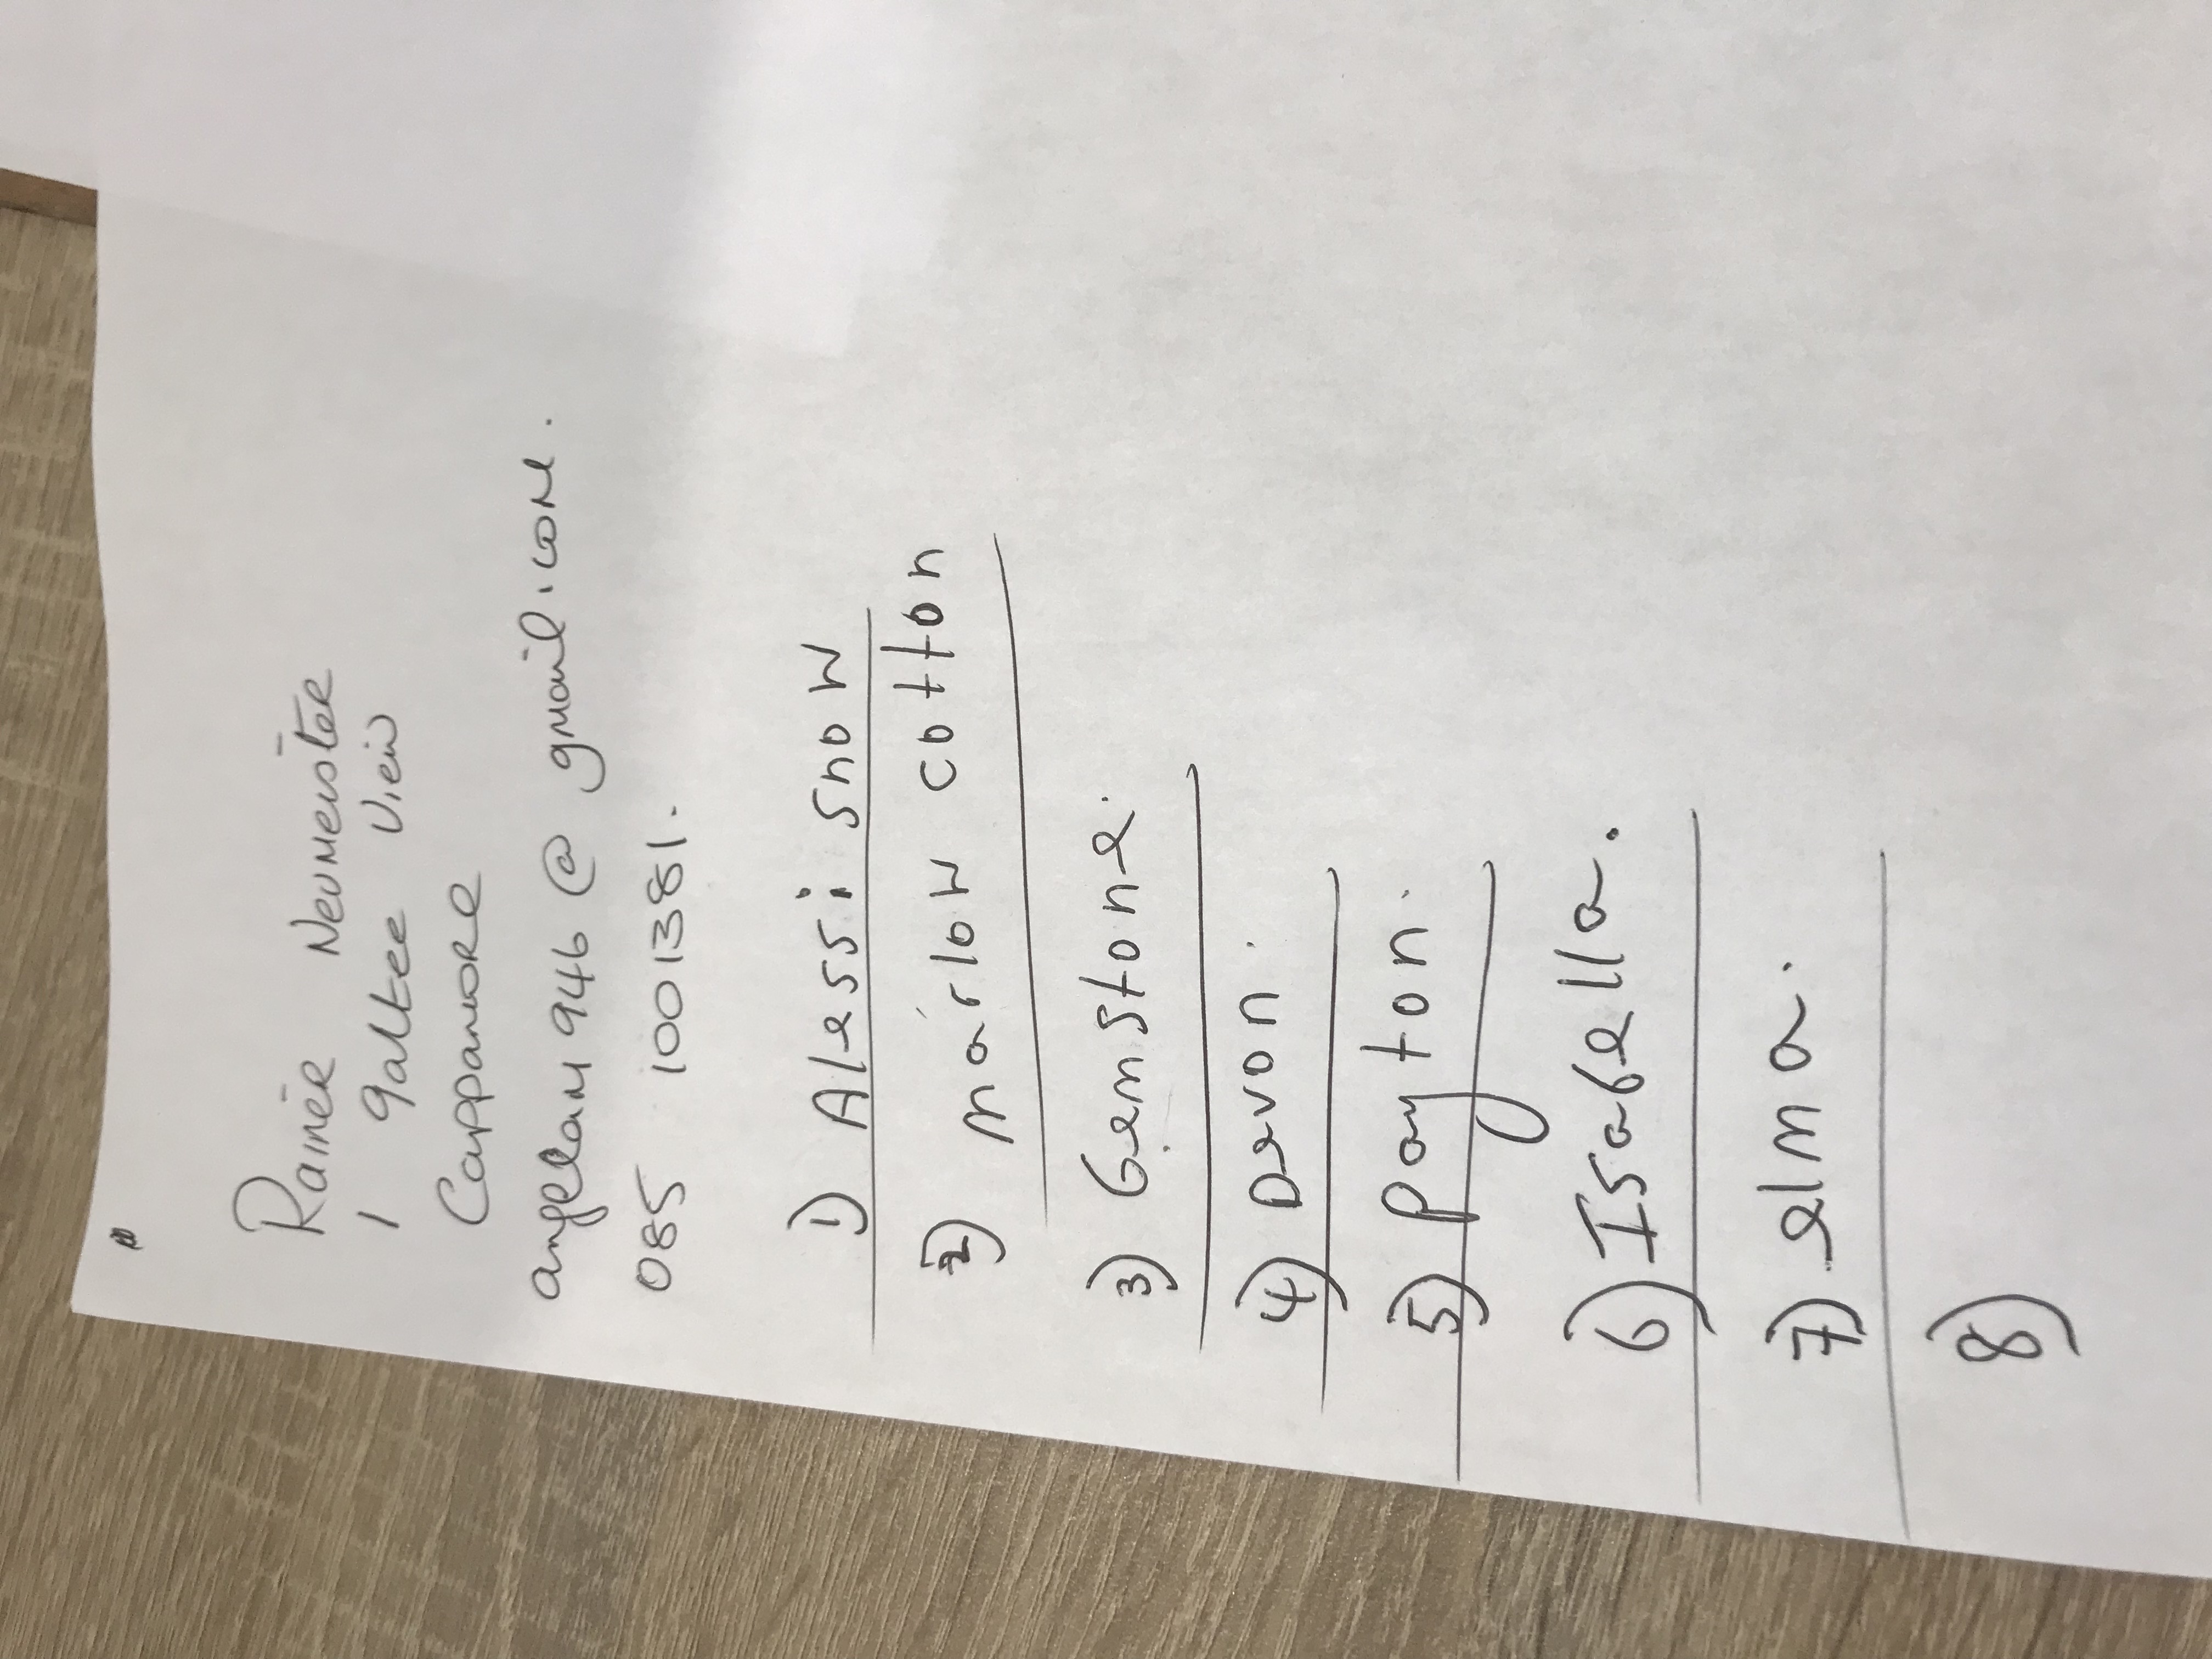 Rainee Neumeister
1 galtee View
Cappamore
angelam946@gmail.com.
085 1001381.
1) Alessi snow
2) marlow cotton
3) Gemstone.
4) Devon.
5) Payton.
6) Isabella.
7) elma.
8)